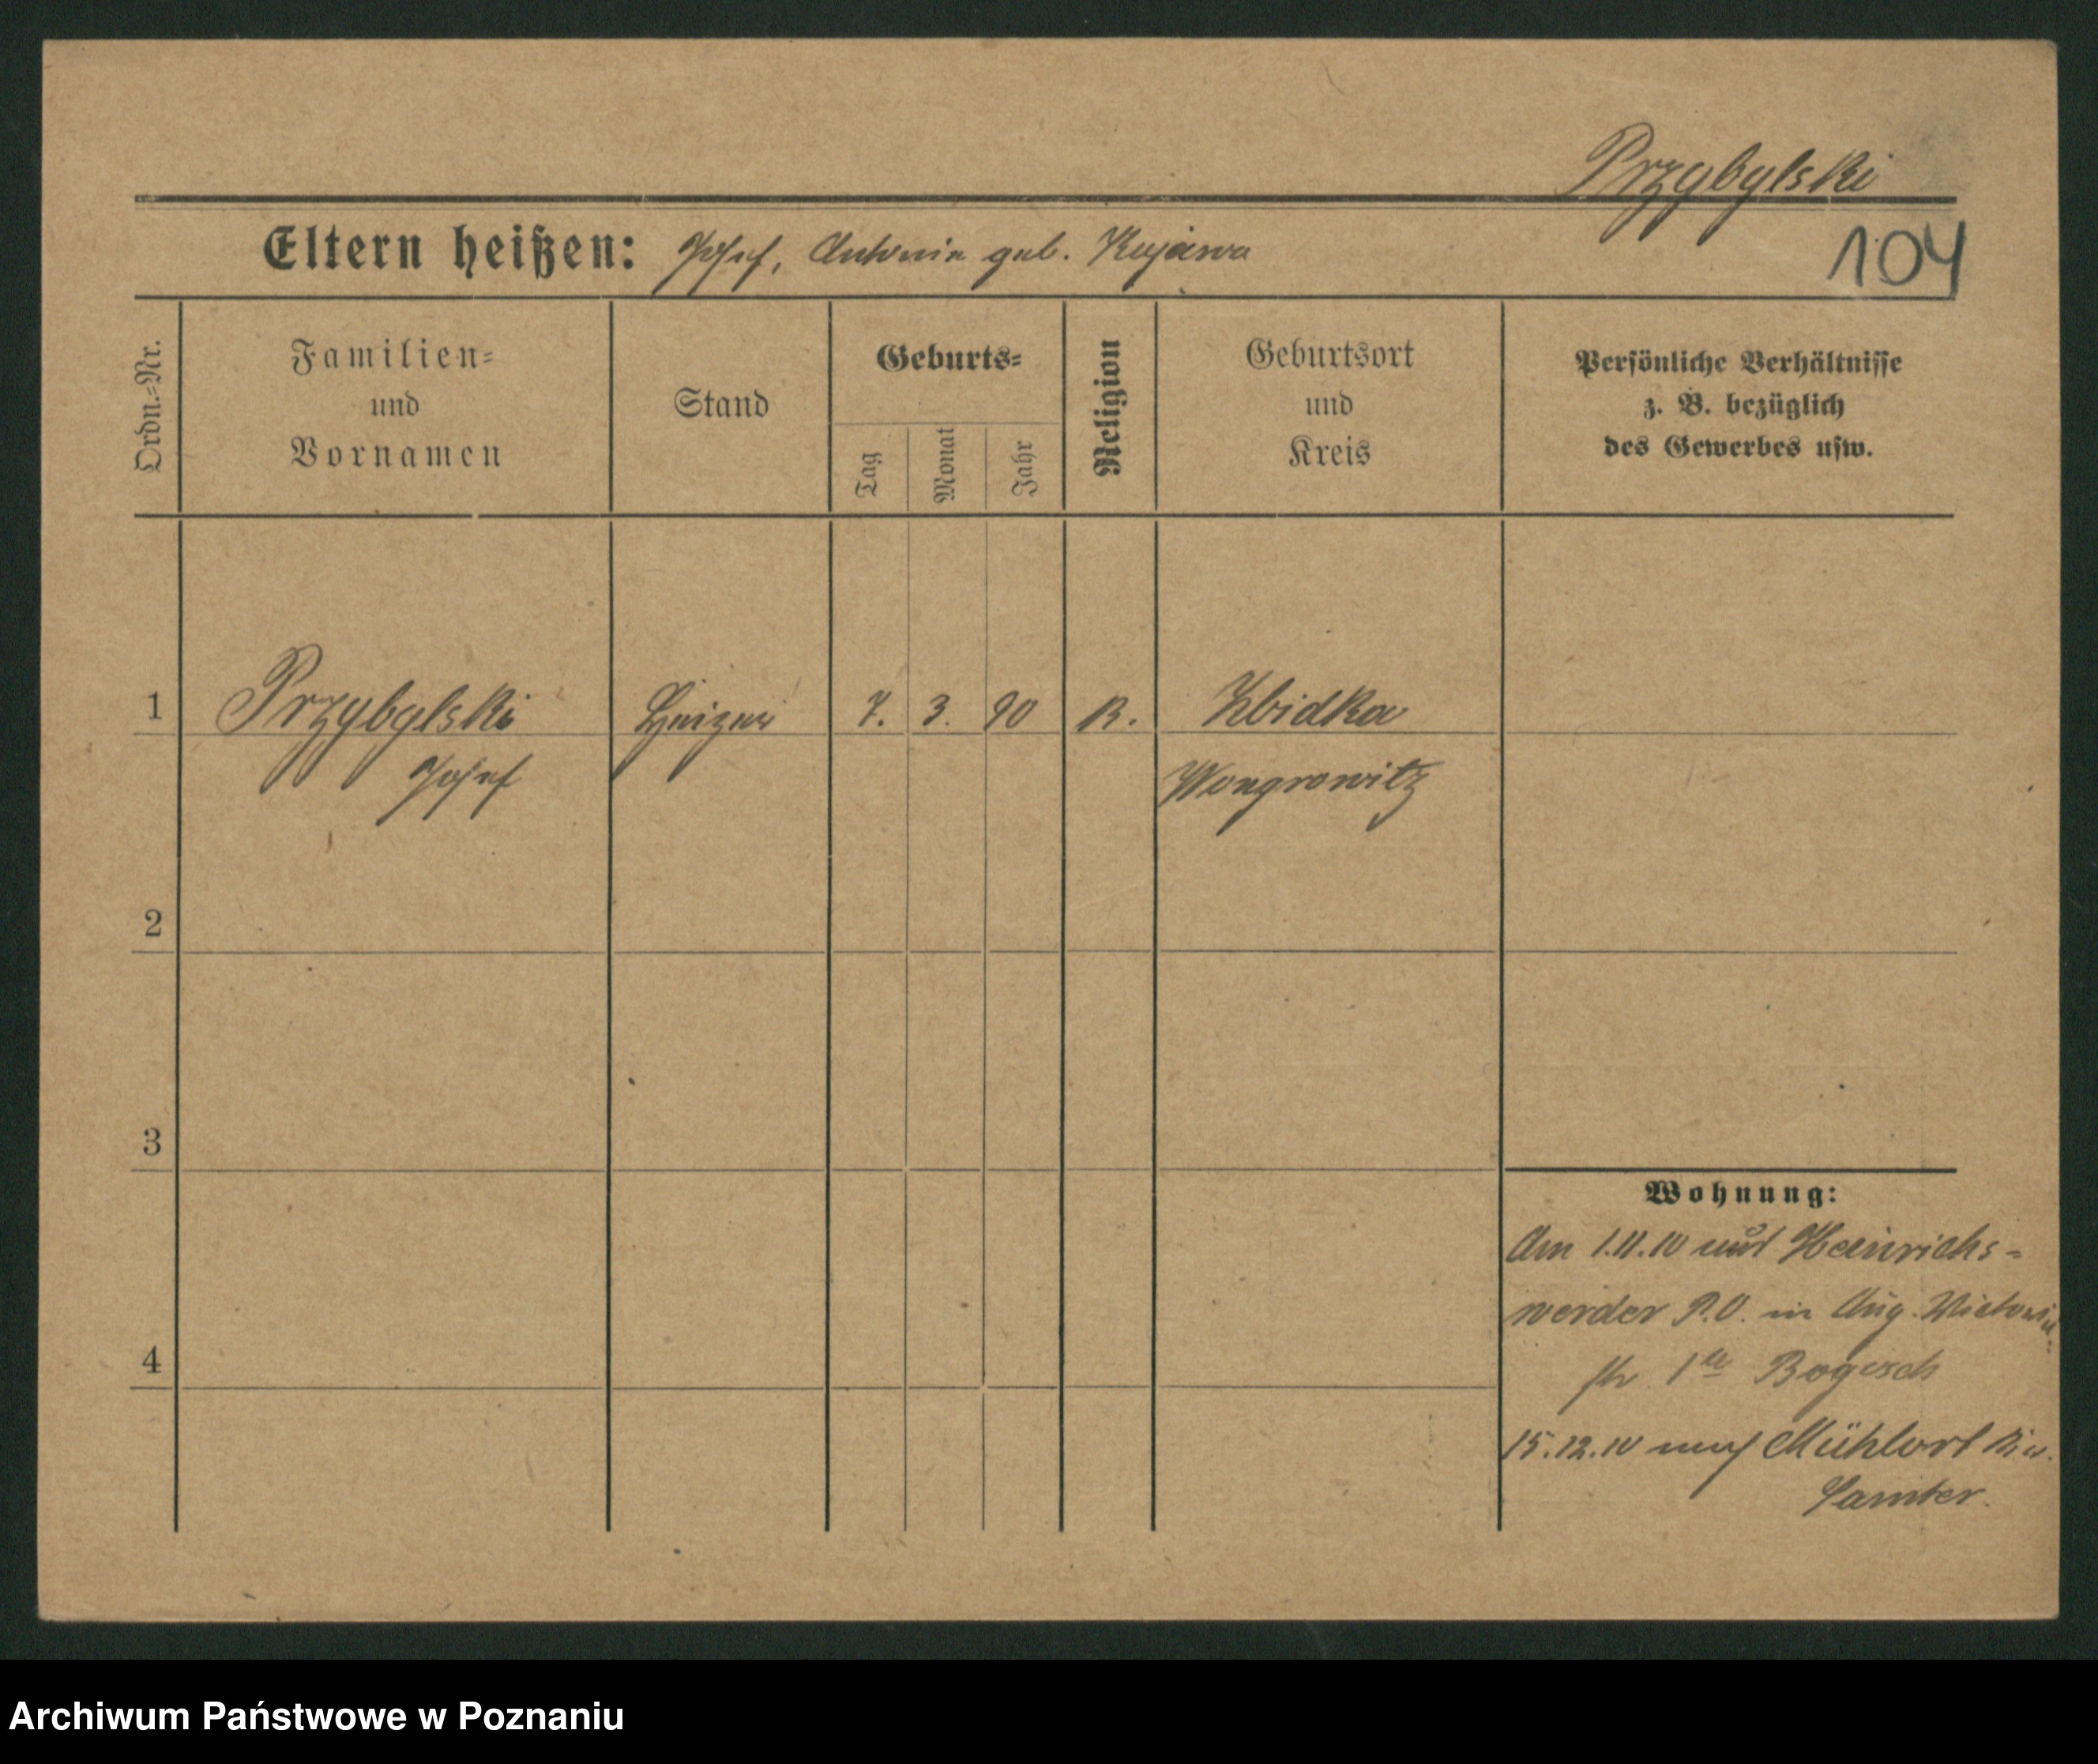 Przybylski
Eltern heißen: Josef, Antonie geb. Kujawa
104
Ordn.-Nr.
Familien-
und
Vornamen
Stand
Geburts-
Tag
Monat
Jahr
Religion
Geburtsort
und
Kreis
Persönliche Verhältnisse
z. B. bezüglich
des Gewerbes usw.
1 Przybylski Heizer 7. 3. 90 K. Zbidka
Josef Wongrowitz
2
3
4
Wohnung:
Am 1.11.10 aus Heinrichs-
werder P.O. in Aug. Victoria
str 1 Bogesch
15.12.10 nach Mühlort Kr.
Samter.
Archiwum Państwowe w Poznaniu